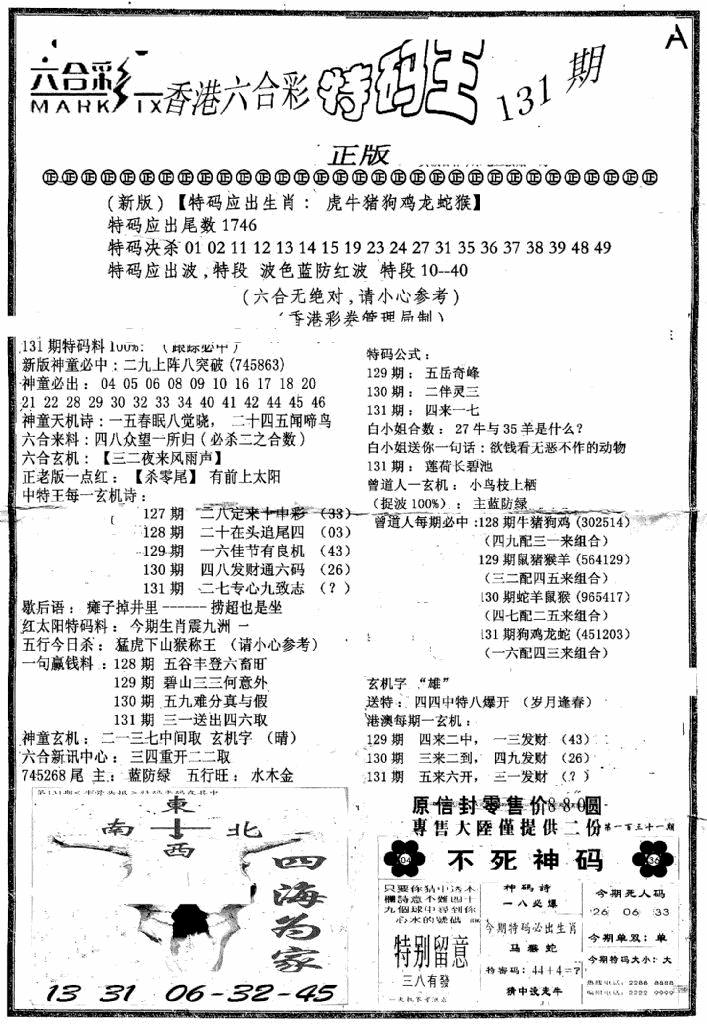 A
六合彩
MARK IX
香港六合彩 特码王 131期
正版
正正正正正正正正正正正正正正正正正正正正正正正正正正正正正正正正
(新版)【特码应出生肖： 虎牛猪狗鸡龙蛇猴】
特码应出尾数1746
特码决杀 01 02 11 12 13 14 15 19 23 24 27 31 35 36 37 38 39 48 49
特码应出波,特段 波色蓝防红波 特段10--40
(六合无绝对,请小心参考)
(香港彩券管理局制)
131期特码料100%： (跟踪必中)
新版神童必中：二九上阵八突破(745863)
神童必出： 04 05 06 08 09 10 16 17 18 20
21 22 28 29 30 32 33 34 40 41 42 44 45 46
神童天机诗：一五春眠八觉晓， 二十四五闻啼鸟
六合来料：四八众望一所归(必杀二之合数)
六合玄机：【三二夜来风雨声】
正老版一点红：【杀零尾】 有前上太阳
中特王每一玄机诗：
127期 二八定来十中彩 (33)
128期 二十在头追尾四 (03)
129期 一六佳节有良机 (43)
130期 四八发财通六码 (26)
131期 二七专心九致志 (?)
歇后语： 瘫子掉井里------捞超也是坐
红太阳特码料： 今期生肖震九洲
五行今日杀： 猛虎下山猴称王 (请小心参考)
一句赢钱料：128期 五谷丰登六畜旺
129期 碧山三三何意外
130期 五九难分真与假
131期 三一送出四六取
神童玄机：二一三七中间取 玄机字 (晴)
六合新讯中心： 三四重开二二取
745268尾 主：蓝防绿 五行旺：水木金
特码公式：
129期： 五岳奇峰
130期： 二伴灵三
131期： 四来一七
白小姐合数： 27牛与35羊是什么?
白小姐送你一句话：欲钱看无恶不作的动物
131期： 莲荷长碧池
曾道人一玄机： 小鸟枝上栖
(捉波100%)： 主蓝防绿
曾道人每期必中:128期牛猪狗鸡(302514)
(四九配三一来组合)
129期鼠猪猴羊(564129)
(三二配四五来组合)
130期蛇羊鼠猴(965417)
(四七配二五来组合)
131期狗鸡龙蛇(451203)
(一六配四三来组合)
玄机字 “雄”
送特： 四四中特八爆开 (岁月逢春)
港澳每期一玄机：
129期 四来二中， 一三发财 (43)
130期 三来二到， 四九发财 (26)
131期 五来六开， 三一发财 (?)
東
南 北
西
四海为家
13 31 06-32-45
原信封零售价880圆
專售大陸僅提供二份 第一百三十一期
04 不死神码 36
只要你猜中透木
欄詩意不難四十
九個球中尋到你
心水的號碼
特别留意
三八有發
神码詩
一八必爆
今期特码必出生肖
马 猴 蛇
特密码：44+4=?
猪中没走牛
今期死人码
26 06 33
今期单双：单
今期特码大小：大
热线电话：2288 8888
编辑电话：2222 9999